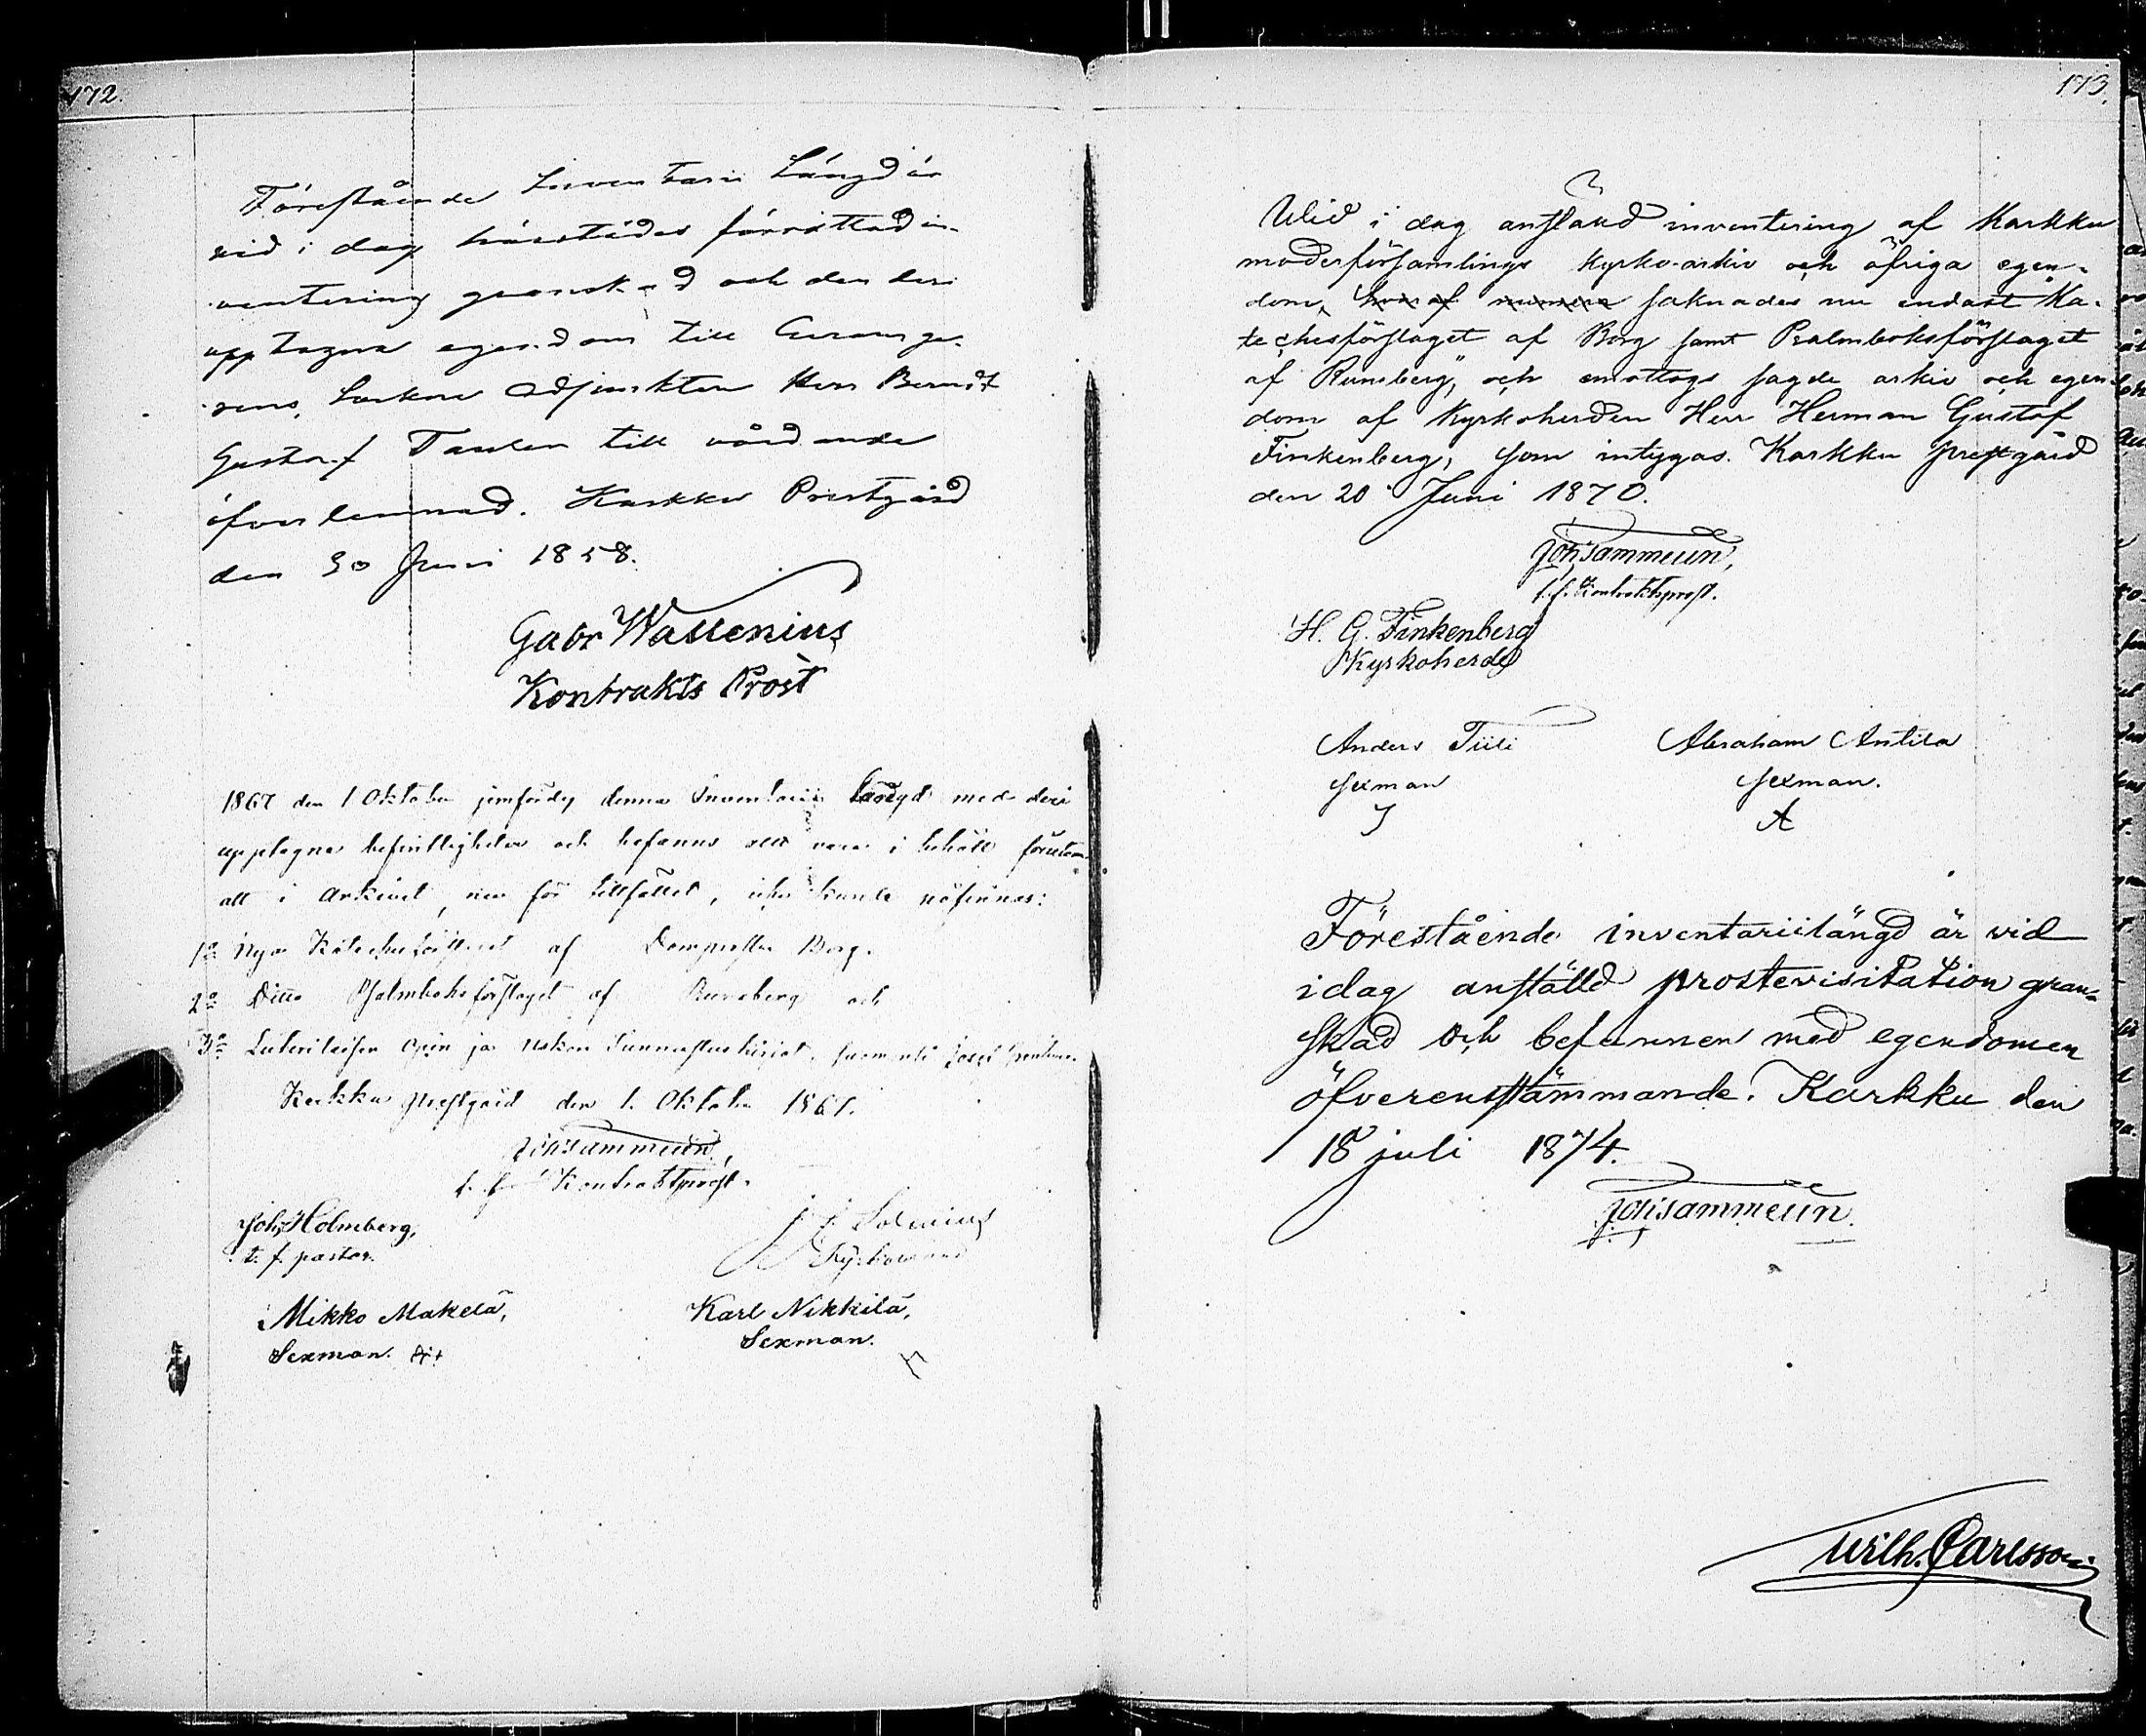 172.
Förestående Inventarii Längd är
vid i dag härstädes förrättad in-
ventering granskad och den deri
upptagna egendom till
Adjunkten Herr Berndt
Gustaf till vårdande
öfverlemnad. Karkku Prestgård
den 30 Juni 1858.
Gabr Wallenius
Kontrakts Prost
1867 den 1 Oktober jemfördes denna Inventarii Längd med deri
upptagna befintligheter och befanns allt vara i behåll förutom
att i Arkivet, nu för tillfället, icke kunde
1o Nya af Domprosten Borg.
2o Ditto Psalmboksförslaget af Runeberg och
3o opin ja uskon
Karkku prestgård den 1. Oktober 1867.
Joh Sammelin,
Kontraktsprost.
Joh. Holmberg,
t. f. pastor.
Mikko Mäkelä,
Sexman.
Karl Nikkilä,
Sexman.
173.
Wid i dag anstäld inventering af Karkku
moderförsamlings kyrko-arkiv och öfriga egen-
dom, saknades nu endast Ka-
techesförslaget af Borg samt Psalmboksförslaget
af Runeberg, och emottogs sagde arkiv och egen-
dom af Kyrkoherden Herr Herman Gustaf
Finkenberg, som intygas. Karkku prestgård
den 20 Juni 1870.
Joh Sammelin,
t.f. Kontraktsprost.
H. G. Finkenberg
Kyrkoherde
Anders Tiili Abraham Antila
sexman sexman.
A
Förestående inventariilängd är vid
idag anstäld prostevisitation gran-
skad och befunnen med egendomen
öfverensstämmande. Karkku den
18 juli 1874.
Joh Sammelin.
Wilh. Carlsson